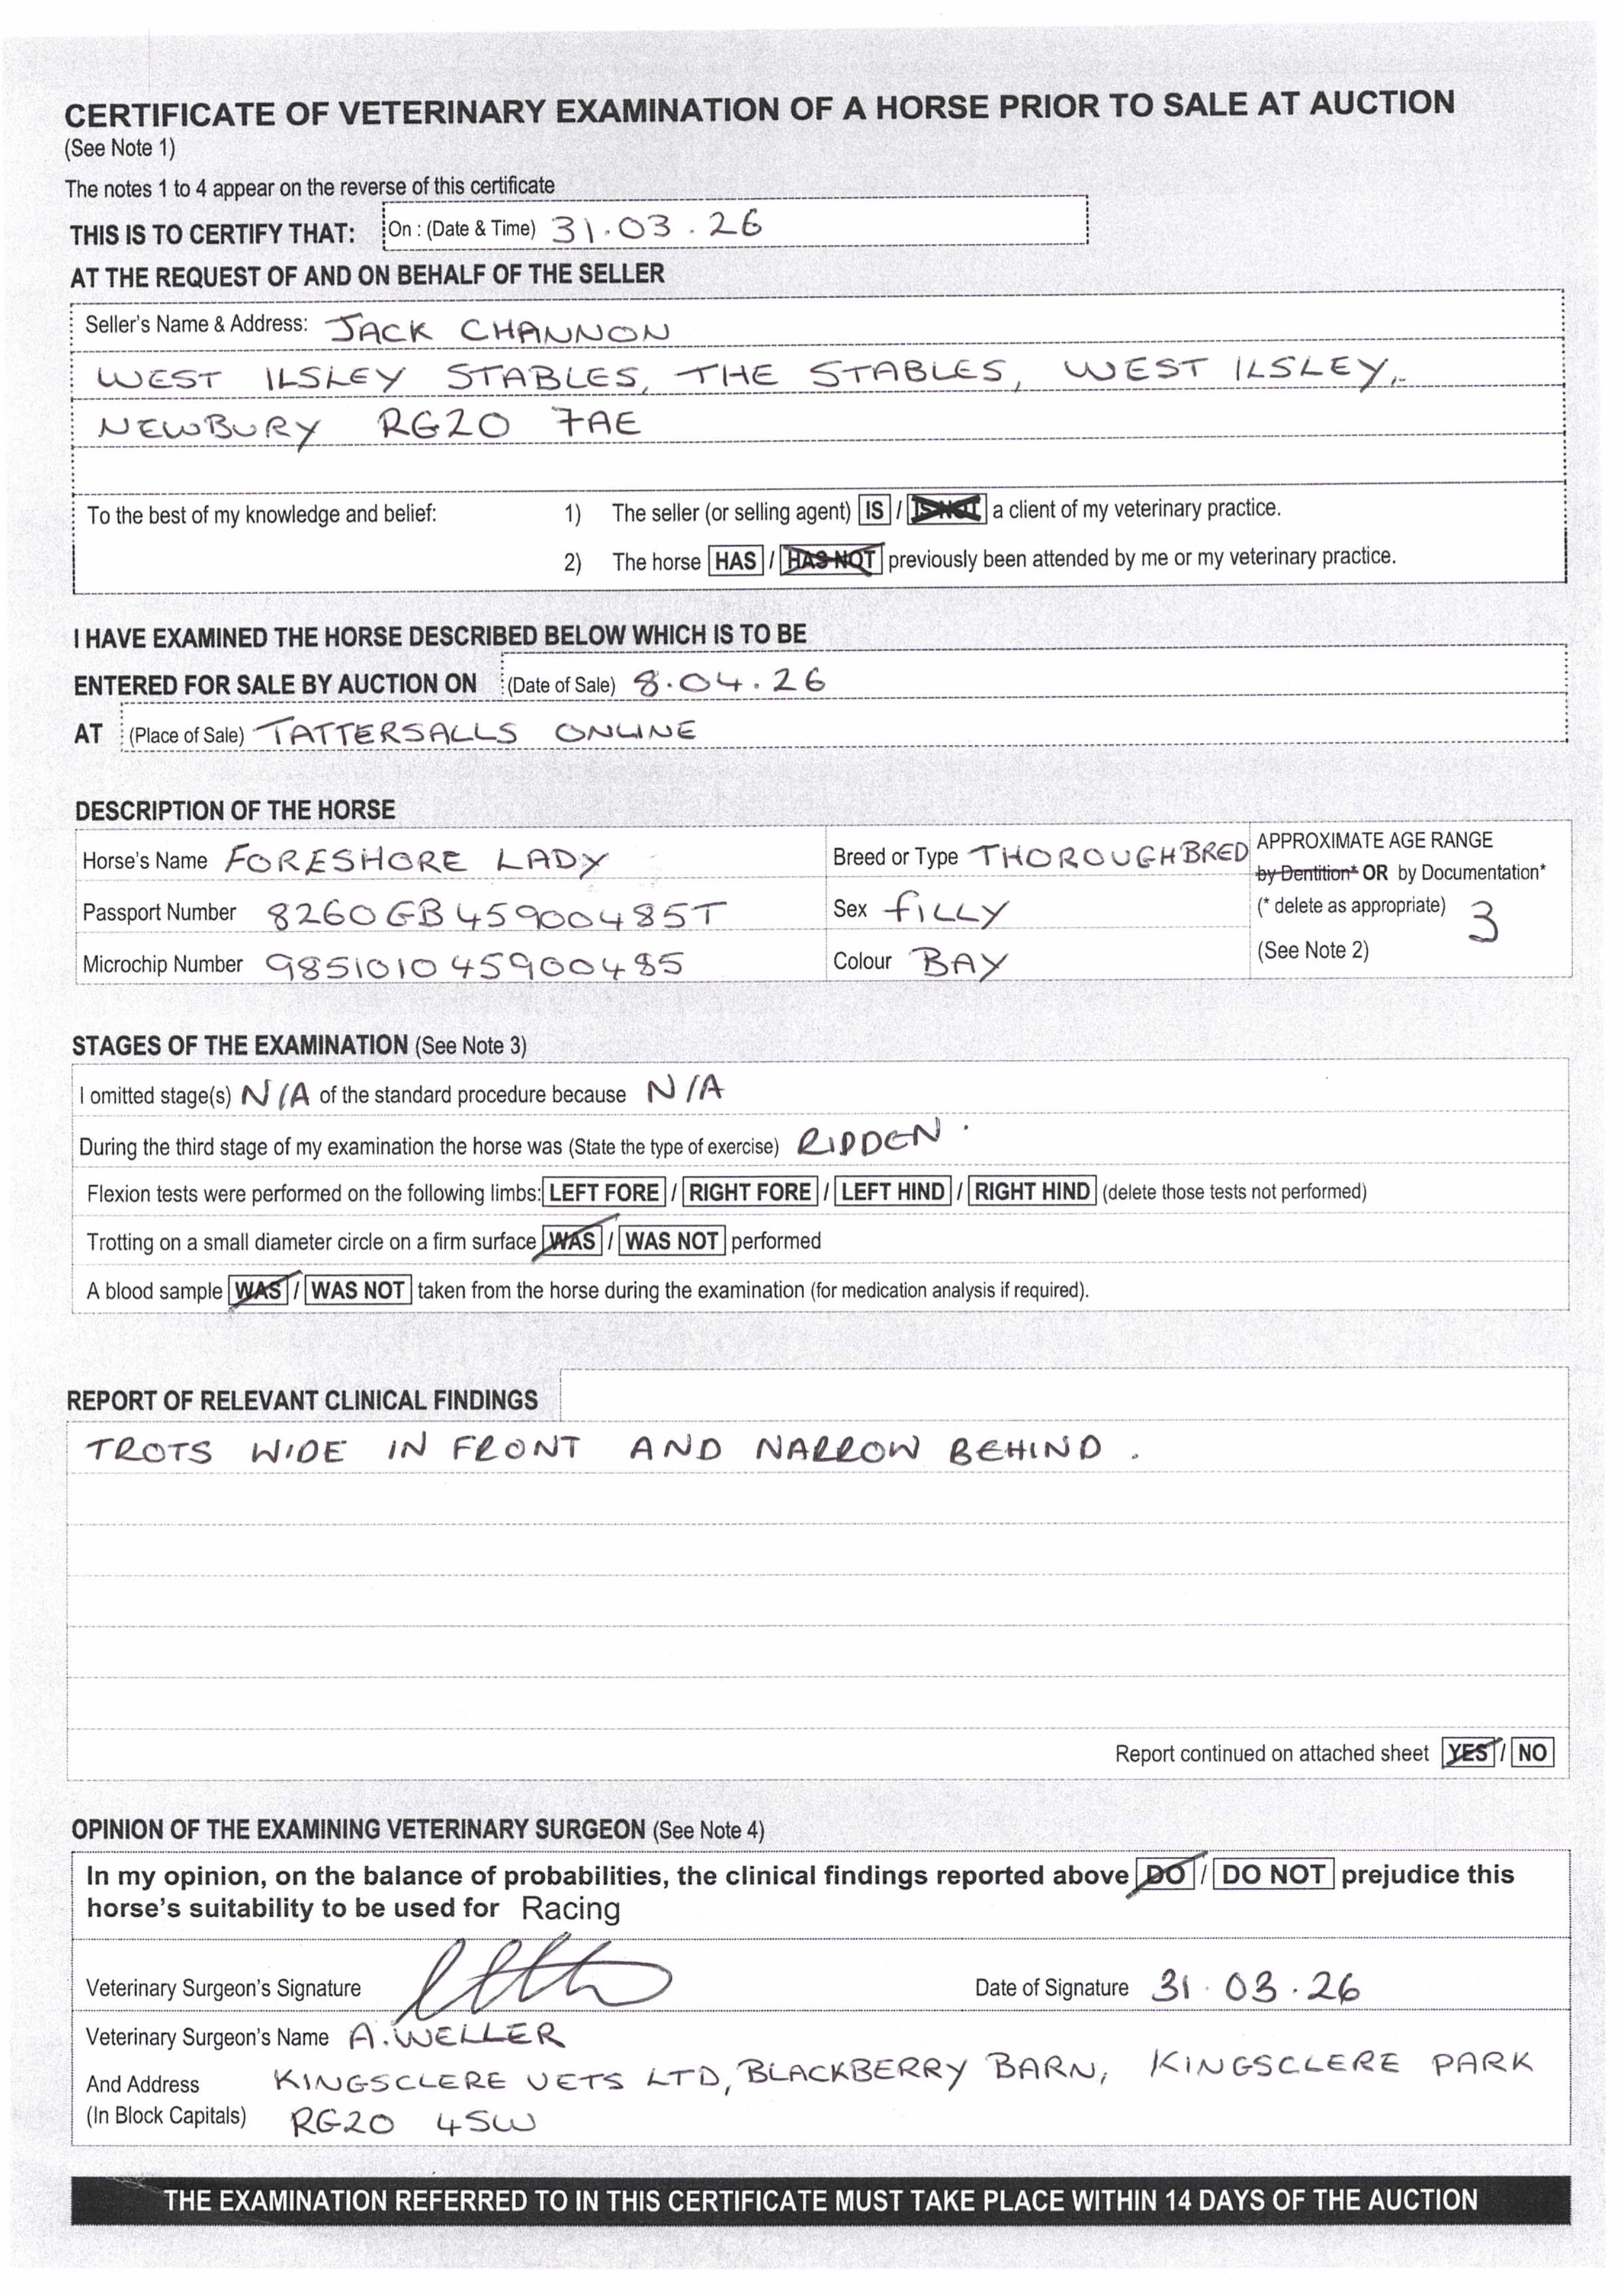 CERTIFICATE OF VETERINARY EXAMINATION OF A HORSE PRIOR TO SALE AT AUCTION
(See Note 1)
The notes 1 to 4 appear on the reverse of this certificate
THIS IS TO CERTIFY THAT: On : (Date & Time) 31.03.26
AT THE REQUEST OF AND ON BEHALF OF THE SELLER
Seller's Name & Address: JACK CHANNON
WEST ILSLEY STABLES, THE STABLES, WEST ILSLEY,
NEWBURY RG20 7AE
To the best of my knowledge and belief: 1) The seller (or selling agent) IS / IS NOT a client of my veterinary practice.
2) The horse HAS / HAS NOT previously been attended by me or my veterinary practice.
I HAVE EXAMINED THE HORSE DESCRIBED BELOW WHICH IS TO BE
ENTERED FOR SALE BY AUCTION ON (Date of Sale) 8.04.26
AT (Place of Sale) TATTERSALLS ONLINE
DESCRIPTION OF THE HORSE
Horse's Name FORESHORE LADY Breed or Type THOROUGHBRED APPROXIMATE AGE RANGE
by Dentition* OR by Documentation*
Passport Number 8260GB45900485T Sex FILLY (* delete as appropriate) 3
Microchip Number 985101045900485 Colour BAY (See Note 2)
STAGES OF THE EXAMINATION (See Note 3)
I omitted stage(s) N/A of the standard procedure because N/A
During the third stage of my examination the horse was (State the type of exercise) RIDDEN.
Flexion tests were performed on the following limbs: LEFT FORE / RIGHT FORE / LEFT HIND / RIGHT HIND (delete those tests not performed)
Trotting on a small diameter circle on a firm surface WAS / WAS NOT performed
A blood sample WAS / WAS NOT taken from the horse during the examination (for medication analysis if required).
REPORT OF RELEVANT CLINICAL FINDINGS
TROTS WIDE IN FRONT AND NARROW BEHIND.
Report continued on attached sheet YES / NO
OPINION OF THE EXAMINING VETERINARY SURGEON (See Note 4)
In my opinion, on the balance of probabilities, the clinical findings reported above DO / DO NOT prejudice this
horse's suitability to be used for Racing
Veterinary Surgeon's Signature Date of Signature 31.03.26
Veterinary Surgeon's Name A. WELLER
And Address KINGSCLERE VETS LTD, BLACKBERRY BARN, KINGSCLERE PARK
(In Block Capitals) RG20 4SW
THE EXAMINATION REFERRED TO IN THIS CERTIFICATE MUST TAKE PLACE WITHIN 14 DAYS OF THE AUCTION